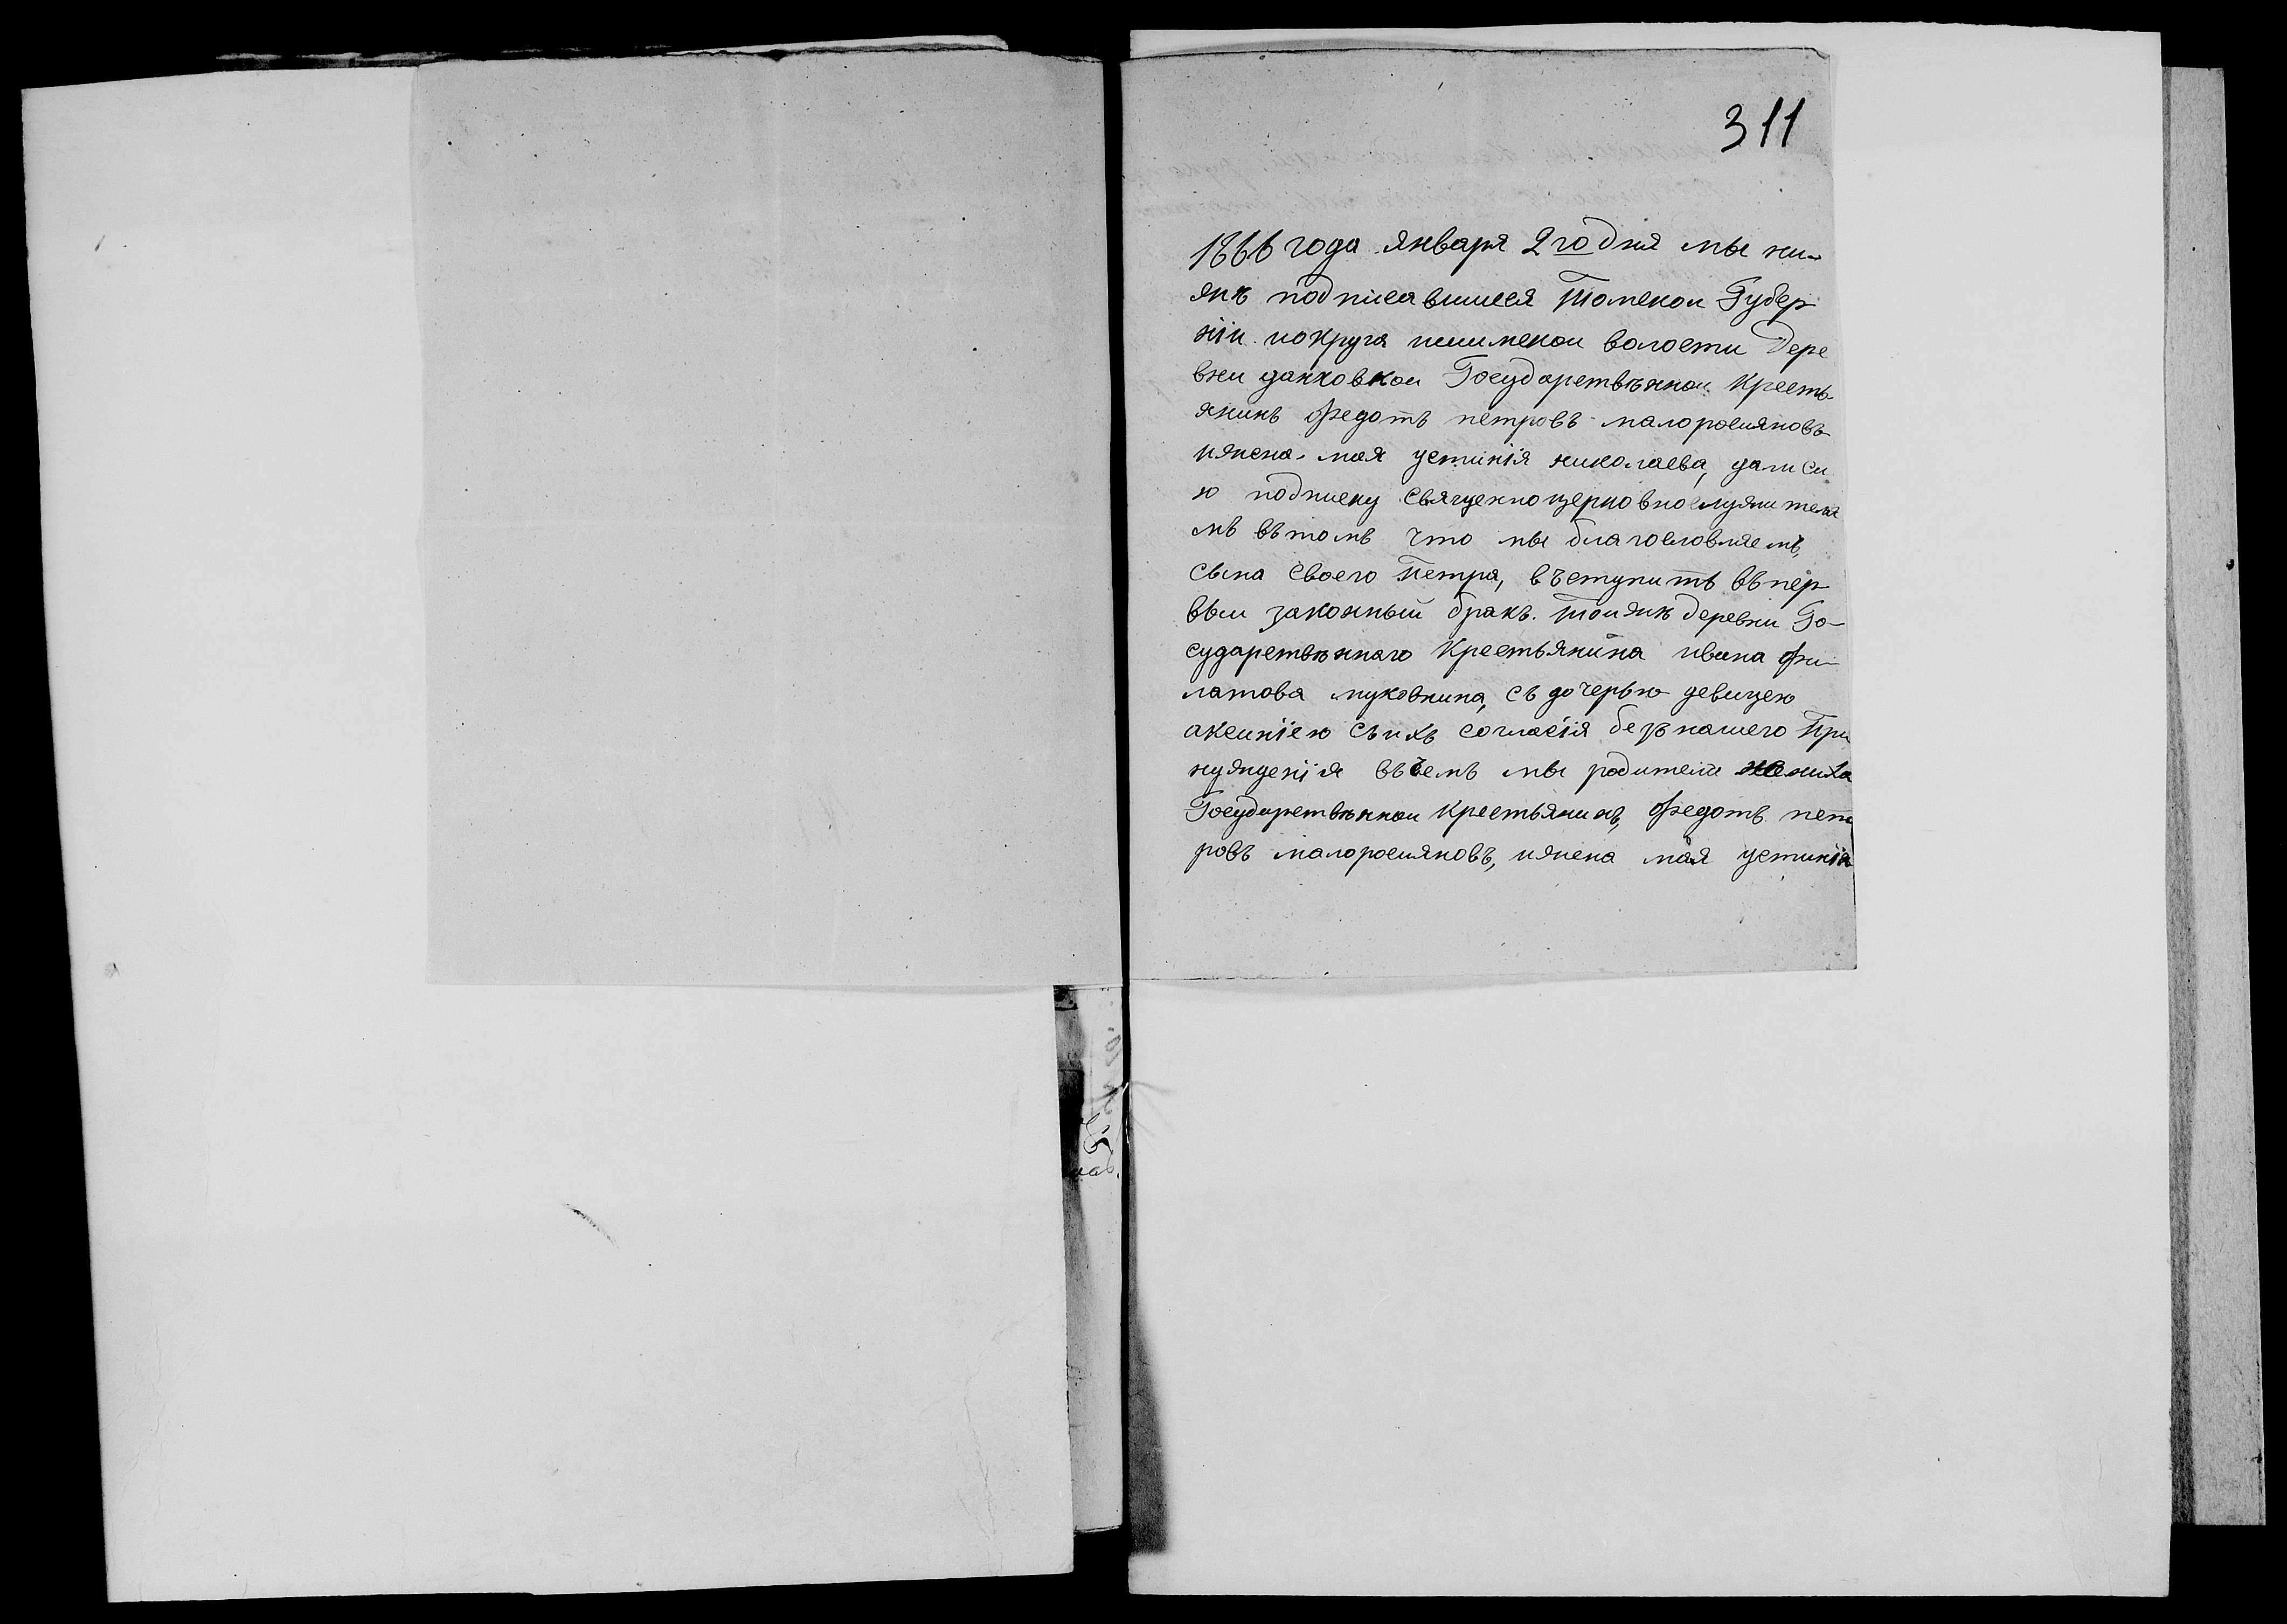 311
1866 года Января 2го дня мы ни-
жѣ подписавшиеся Томской Губер
ніи иокруга ишимской волости Дере
вни данковкои Государствѣнной Кресть-
янинъ Федотъ петровъ малоросияновъ
ижена моя устинія николаева, дали си
ю подписку Священноцерковнослужителя
мъ вътомъ Что мы благословляемъ,
сына Своего Петра, въступить въпер
выи законный бракъ. Тоижѣ деревни Го-
сударствѣннаго Крестьянина ивана Фи-
латова муковнина, съ дочерью девицею
аксиніею Съихъ согласія безънашего При
нужденія въЧемъ мы родители жениха
Государствѣнной Крестьянинъ, Федотъ пет
ровъ малоросияновъ, ижена моя устинія